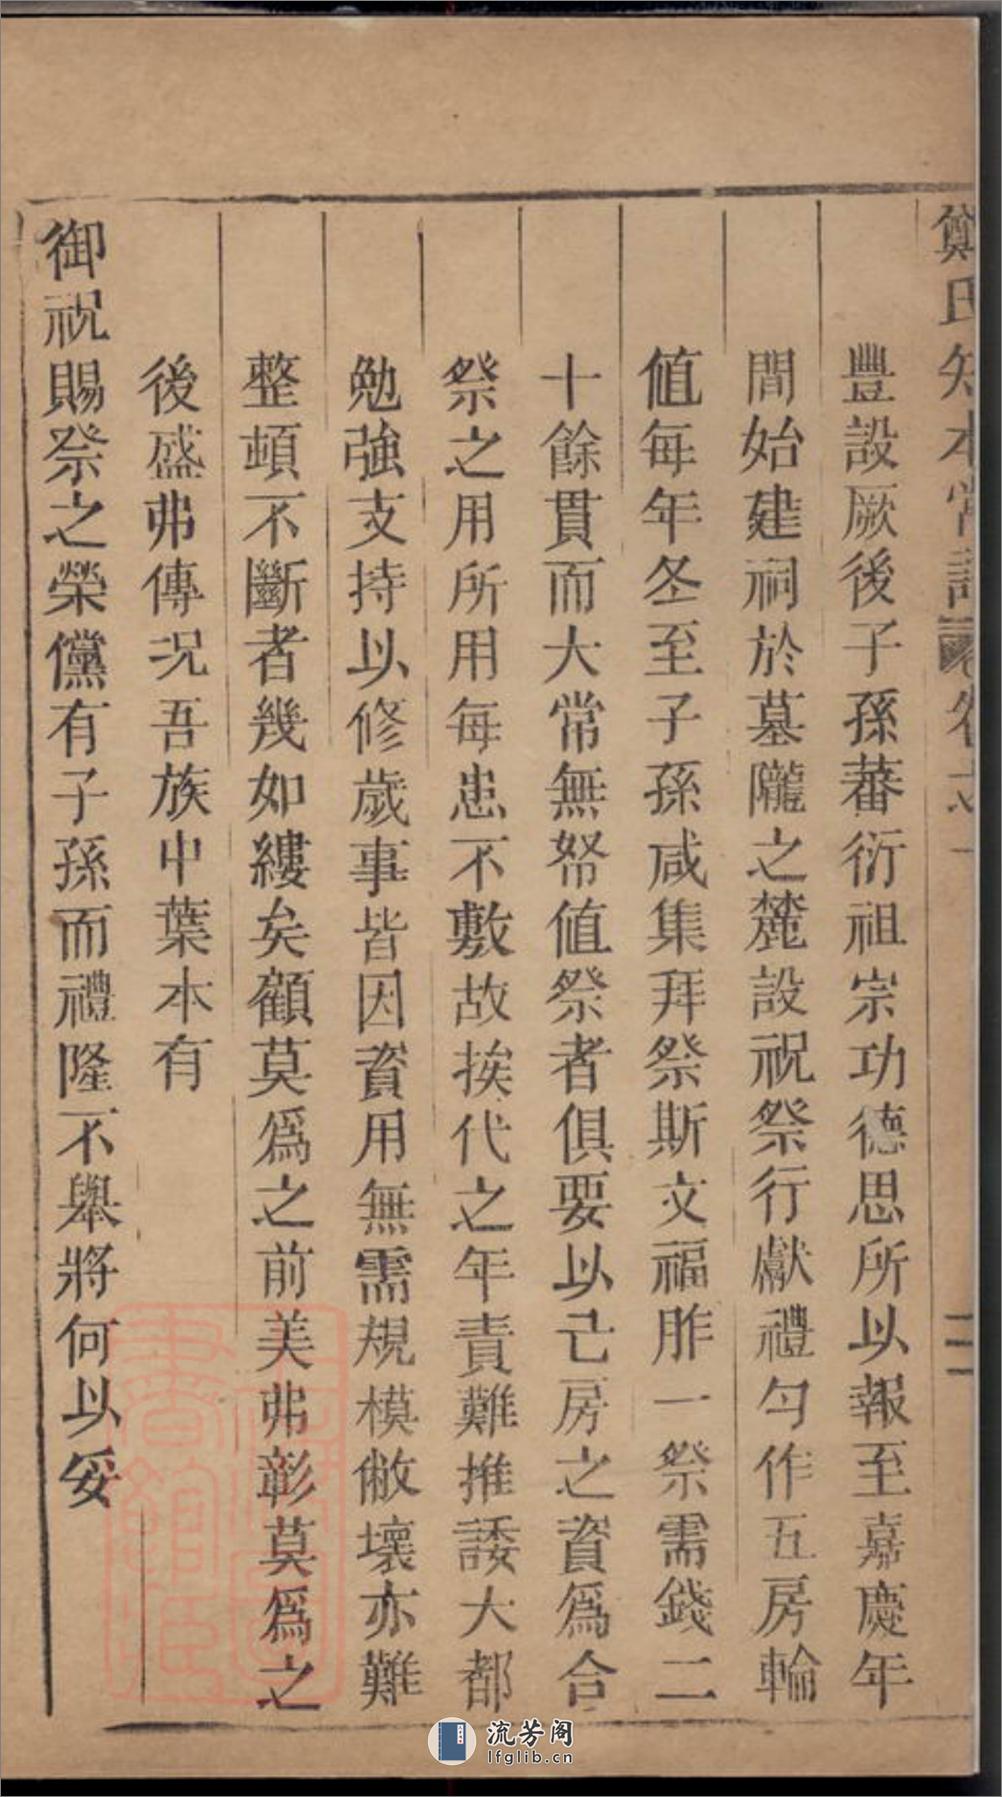 鄭氏知本常記
豐設厥後子孫蕃衍祖宗功德思所以報至嘉慶年
間始建祠於墓隴之麓設祝祭行獻禮勻作五房輪
值每年冬至子孫咸集拜祭斯文福胙一祭需錢二
十餘貫而大常無帑值祭者俱要以己房之資為合
祭之用所用每患不敷故挨代之年責難推諉大都
勉強支持以修歲事皆因資用無需規模敝壞亦難
整頓不斷者幾如縷矣顧莫為之前美弗彰莫為之
後盛弗傳况吾族中葉本有
御祝賜祭之榮儻有子孫而禮隆不舉將何以妥
流芳阁
lfglib.cn